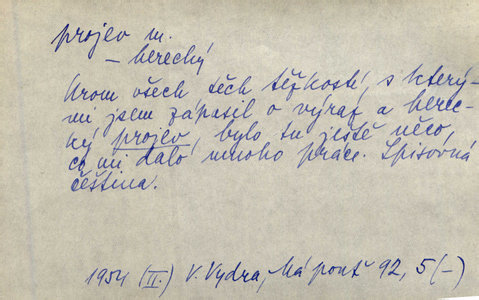 projev m.
– herecký
Krom všech těch těžkostí, s který-
mi jsem zápasil o výraz a herec-
ký projev, bylo tu ještě něco,
co mi dalo mnoho práce. Spisovná
čeština.
1954 (II.) V. Vydra, Má pouť 92, 5 (–)